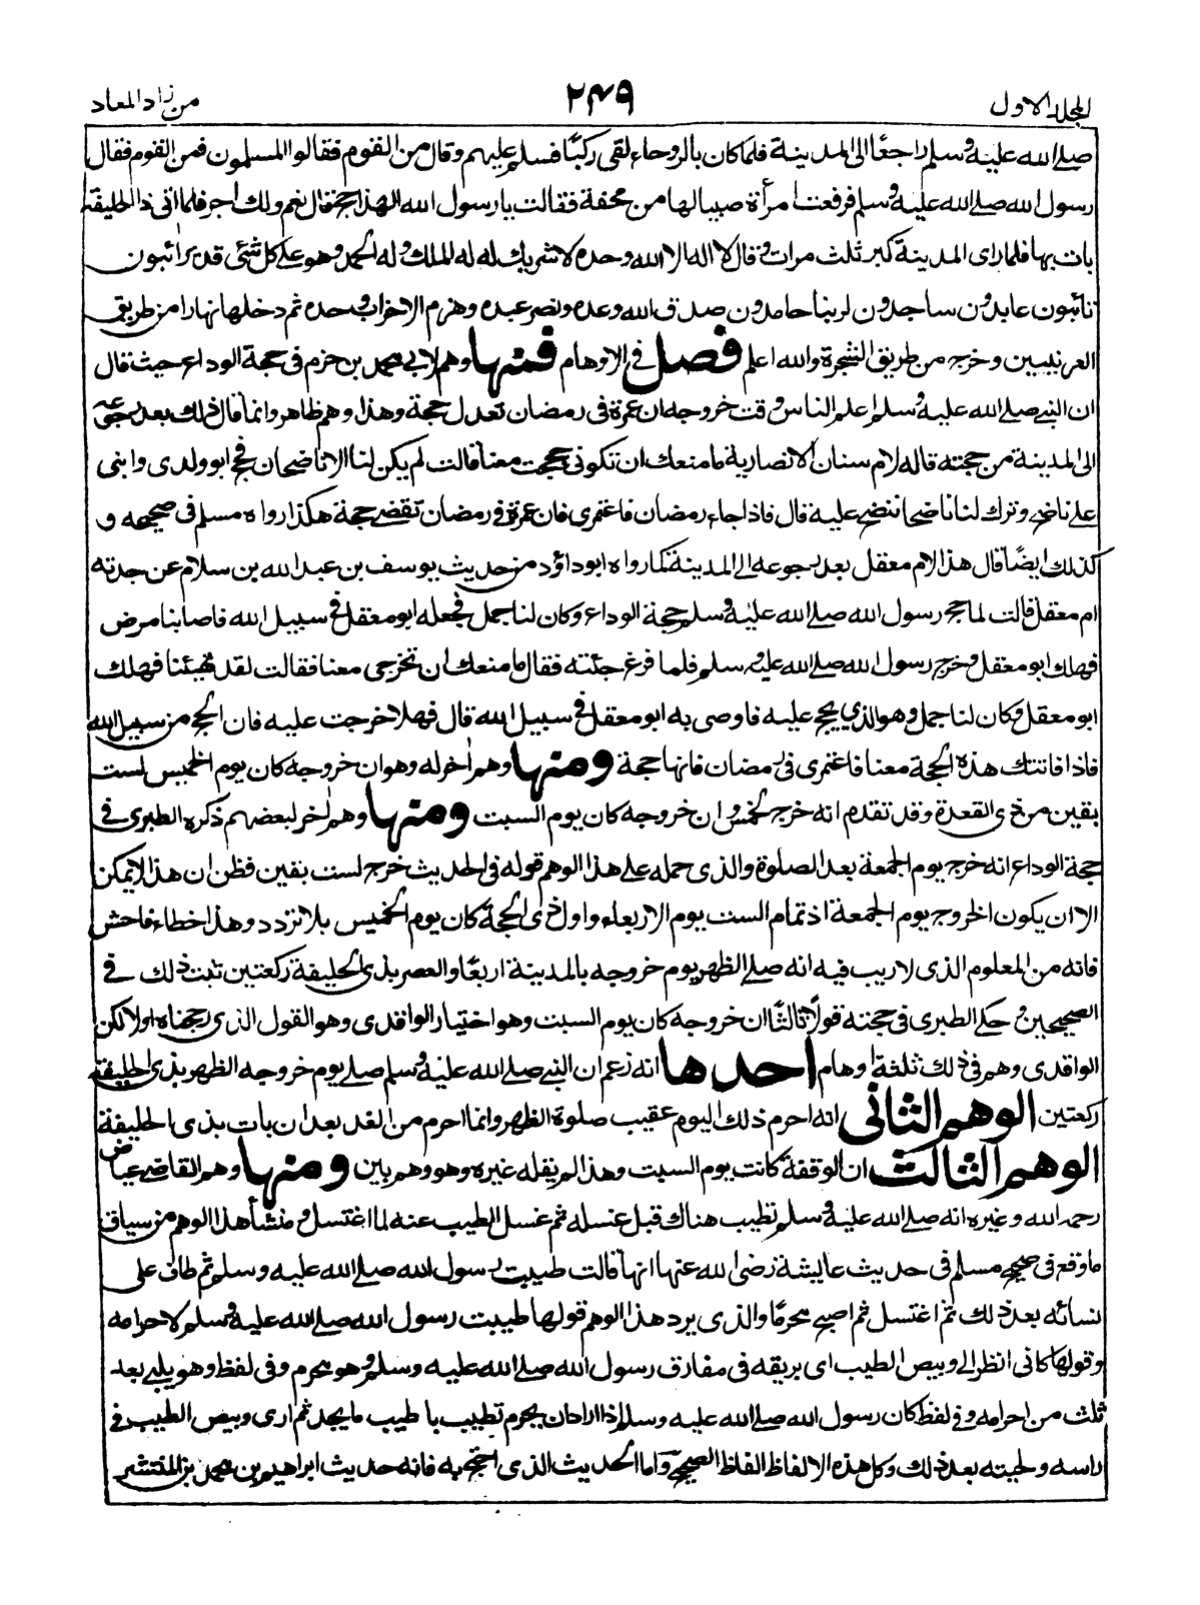 المجلد الاول
٢٤٩
من زاد المعاد
صلے الله عليه وسلم راجعًا الى المدينة فلما كان بالروحاء لقى ركبًا فسلم عليهم وقال من القوم فقالوا المسلمون فمن القوم فقال
رسول الله صلے الله عليه وسلم فرفعت امرأة صبيا لها من محفة فقالت يا رسول الله الهذا حج قال نعم ولك اجر فلما اتى ذا الحليفة
بات بها فلما راى المدينة كبر ثلث مرات وقال لا اله الا الله وحده لا شريك له له الملك وله الحمد وهو على كل شئى قدير ائبون
تائبون عابدون ساجدون لربنا حامدون صدق الله وعده ونصر عبده وهزم الاحزاب وحده ثم دخلها نهارا من طريق
المعرس وخرج من طريق الشجرة والله اعلم فصل فى الاوهام فمنها وهم لابى محمد بن حزم فى حجة الوداع حيث قال
ان النبى صلے الله عليه وسلم اعلم الناس وقت خروجه ان عمرة فى رمضان تعدل حجة وهذا وهم ظاهر وانما قال ذلك بعد رجوعه
الى المدينة من حجته قاله لام سنان الانصارية ما منعك ان تكونى حججت معنا قالت لم يكن لنا الا ناضحان فحج ابو ولدى وابنى
على ناضح وترك لنا ناضحا ننضح عليه قال فاذا جاء رمضان فاعتمرى فان عمرة فى رمضان تقضى حجة هكذا رواه مسلم فى صحيحه و
كذلك ايضًا قال هذا لام معقل بعد رجوعه الى المدينة كما رواه ابو داؤد من حديث يوسف بن عبد الله بن سلام عن جدته
ام معقل قالت لما حج رسول الله صلے الله عليه وسلم حجة الوداع وكان لنا جمل فجعله ابو معقل فى سبيل الله فاصابنا مرض
فهلك ابو معقل وخرج رسول الله صلے الله عليه وسلم فلما فرغ جئته فقال ما منعك ان تخرجى معنا فقالت لقد تهيئنا فهلك
ابو معقل وكان لنا جمل وهو الذى يحج عليه فاوصى به ابو معقل فى سبيل الله قال فهلا خرجت عليه فان الحج من سبيل الله
فاذا فاتتك هذه الحجة معنا فاعتمرى فى رمضان فانها حجة ومنها وهم اٰخر له وهو ان خروجه كان يوم الخميس لست
بقين من ذى القعدة وقد تقدم انه خرج لخمس وان خروجه كان يوم السبت ومنها وهم اٰخر لبعضهم ذكره الطبرى فى
حجة الوداع انه خرج يوم الجمعة بعد الصلوة والذى حمله على هذا الوهم قوله فى الحديث خرج لست بقين فظن ان هذا لا يمكن
الا ان يكون الخروج يوم الجمعة اذ تمام الست يوم الاربعاء واول ذى الحجة كان يوم الخميس بلا تردد وهذا خطاء فاحش
فانه من المعلوم الذى لا ريب فيه انه صلے الظهر يوم خروجه بالمدينة اربعًا والعصر بذى الحليفة ركعتين ثبت ذلك فى
الصحيحين وحكى الطبرى فى حجته قولًا ثالثًا ان خروجه كان يوم السبت وهو اختيار الواقدى وهو القول الذى رجحناه اولا لكن
الواقدى وهم فى ذلك ثلثة اوهام احدها انه زعم ان النبى صلے الله عليه وسلم صلے يوم خروجه الظهر بذى الحليفة
ركعتين الوهم الثانى انه احرم ذلك اليوم عقيب صلوة الظهر وانما احرم من الغد بعد ان بات بذى الحليفة
الوهم الثالث ان الوقفة كانت يوم السبت وهذا لم يقله غيره وهو وهم بين ومنها وهم القاضى عياض
رحمه الله وغيره انه صلے الله عليه وسلم تطيب هناك قبل غسله ثم غسل الطيب عنه لما اغتسل ومنشأ هذا الوهم من سياق
ما وقع فى صحيح مسلم فى حديث عايشة رضى الله عنها انها قالت طيبت رسول الله صلے الله عليه وسلم ثم طاف على
نسائه بعد ذلك ثم اغتسل ثم اصبح محرمًا والذى يرد هذا الوهم قولها طيبت رسول الله صلے الله عليه وسلم لاحرامه
وقولها كانى انظر الى وبيص الطيب اى بريقه فى مفارق رسول الله صلے الله عليه وسلم وهو محرم وفى لفظ وهو يلبى بعد
ثلث من احرامه وفى لفظ كان رسول الله صلے الله عليه وسلم اذا اراد ان يحرم تطيب باطيب ما يجد ثم ارى وبيص الطيب فى
راسه ولحيته بعد ذلك وكل هذه الالفاظ الفاظ الصحيح واما الحديث الذى احتج به فانه حديث ابراهيم بن محمد بن المنتشر